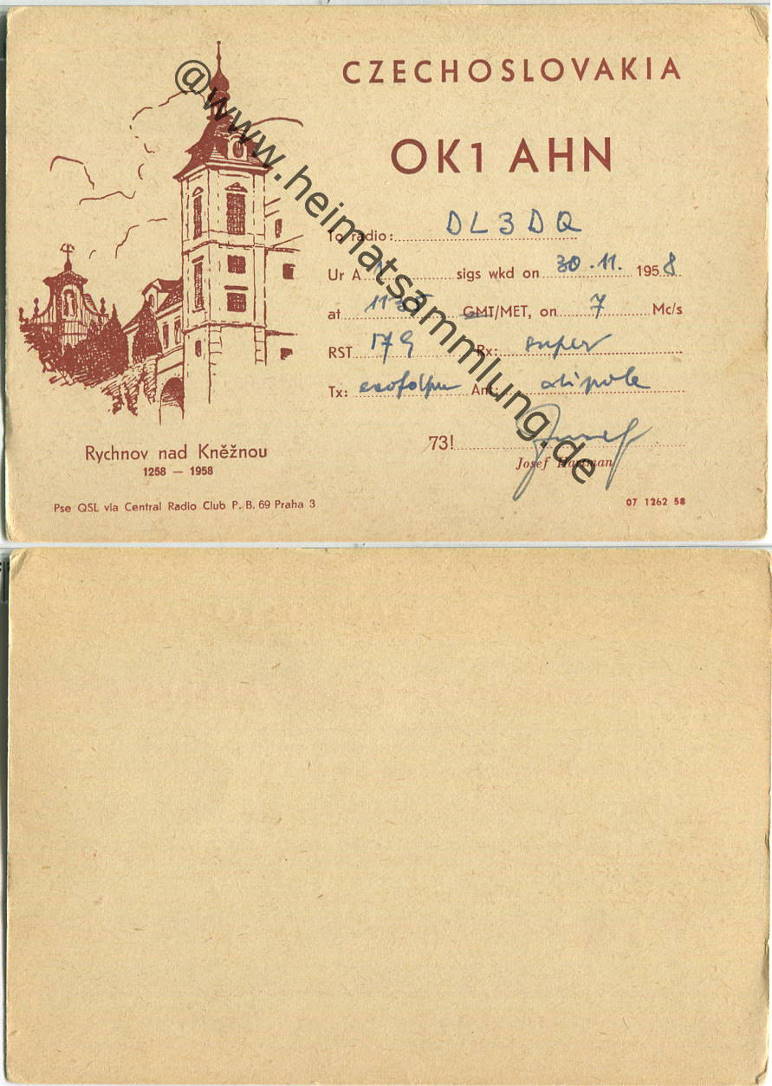 CZECHOSLOVAKIA
OK1 AHN
To radio: DL3DQ
Ur A sigs wkd on 30.11. 1958
at GMT/MET, on 7 Mc/s
RST 579 Rx: super
Tx: Ant: dipole
73! Josef
Josef Hartman
Rychnov nad Kněžnou
1258 — 1958
Pse QSL via Central Radio Club P. B. 69 Praha 3
07 1262 58
@www.heimatsammlung.de